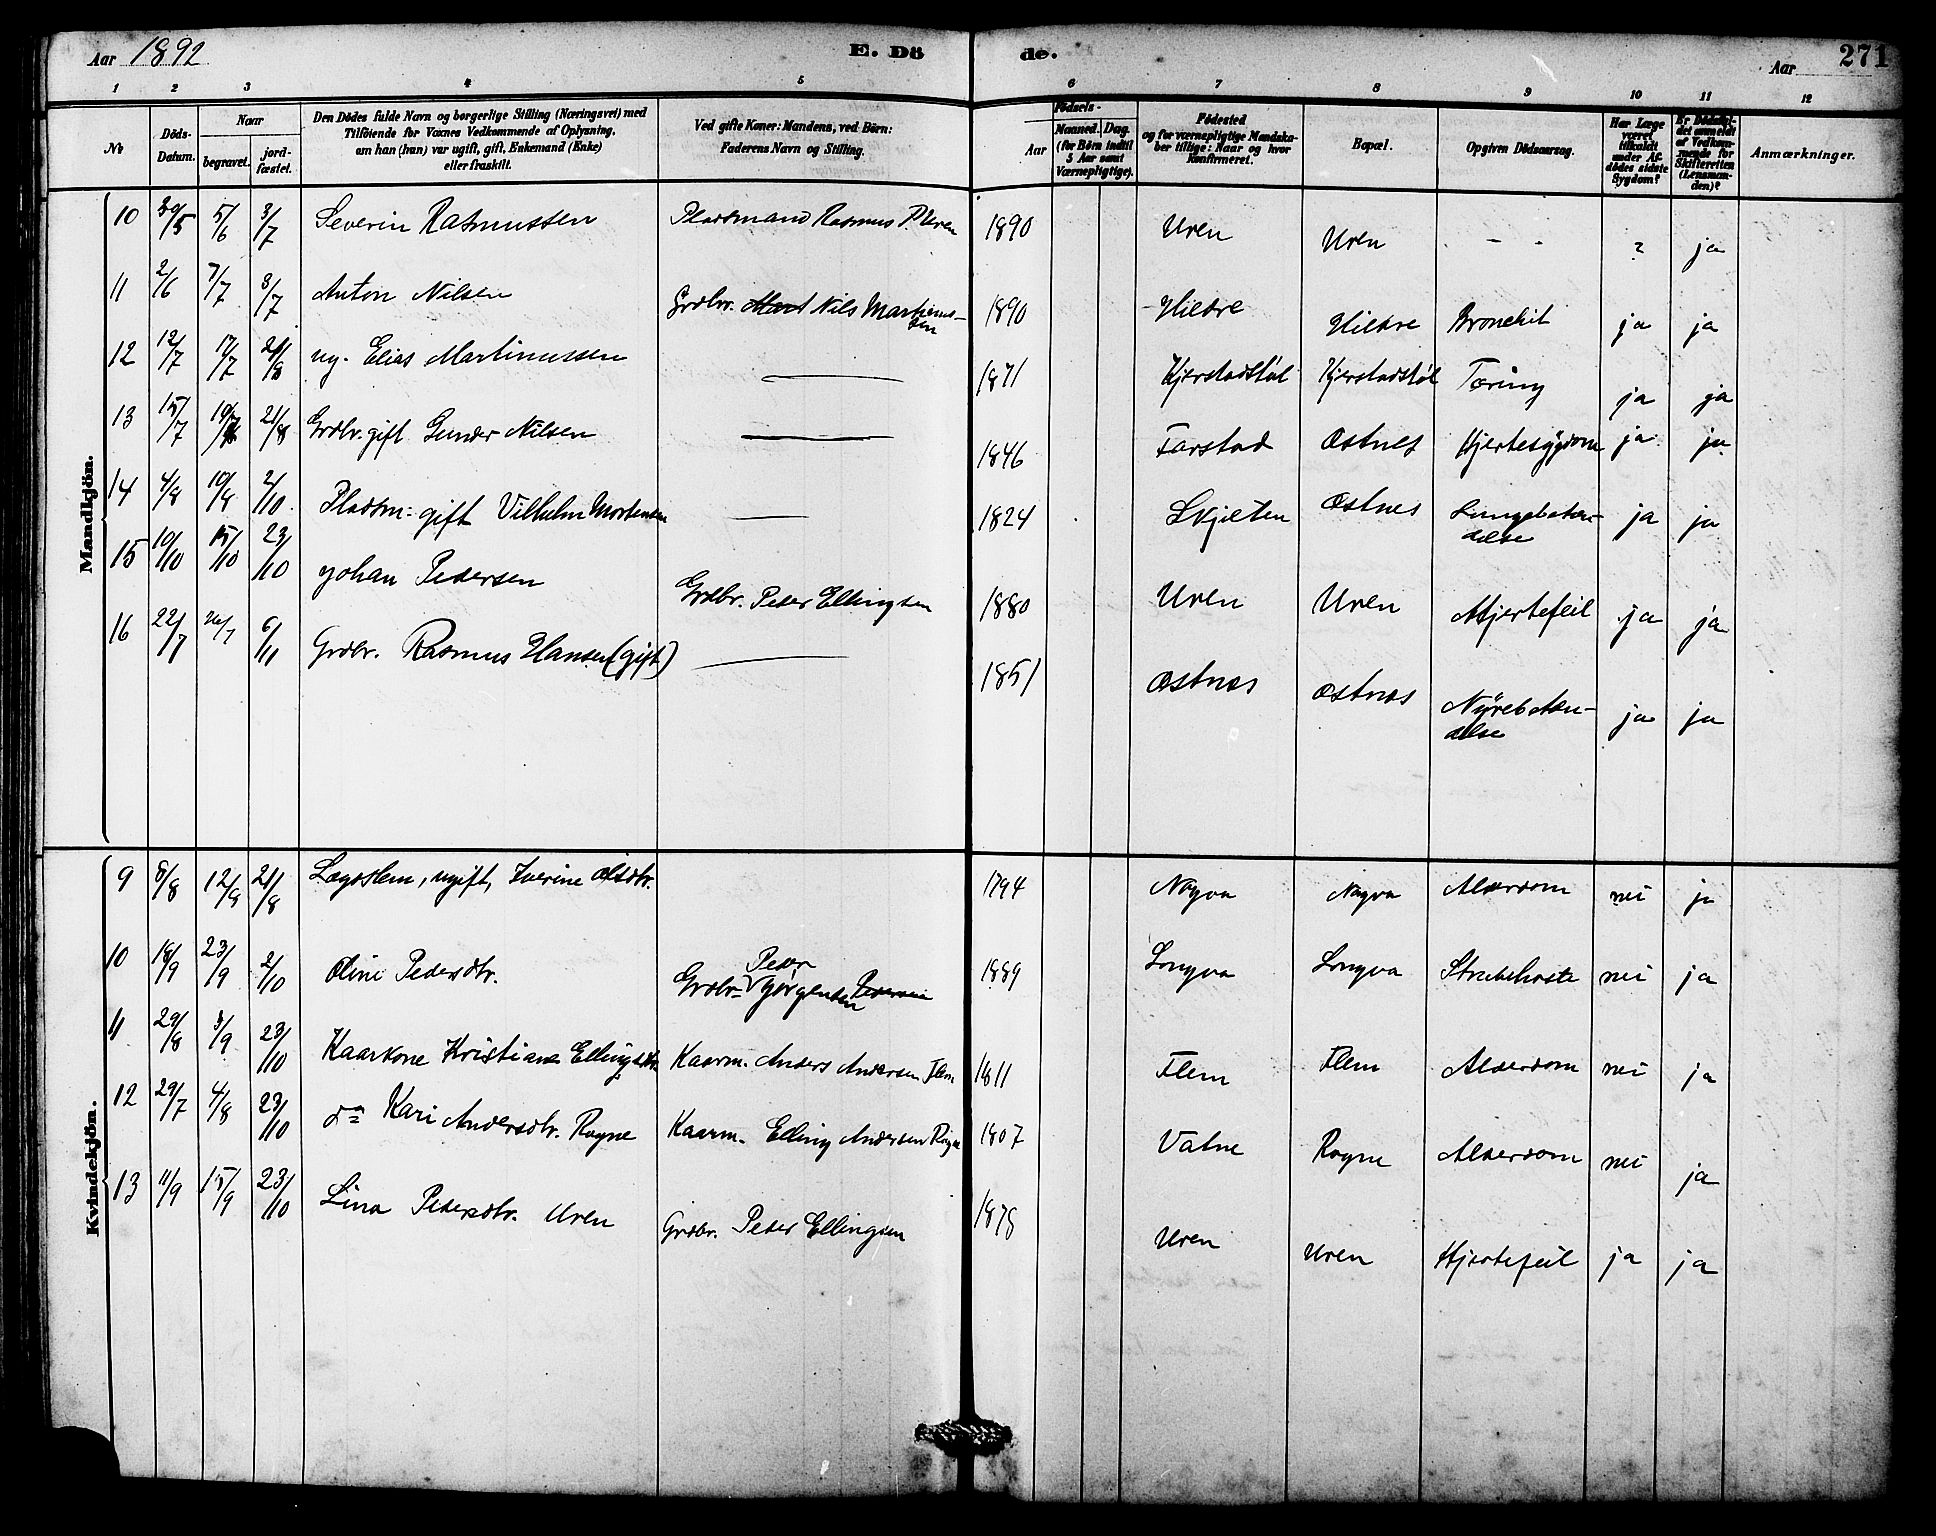 Aar 1892
E. Dö de.
Aar
271
1 2 3 4 5 6 7 8 9 10 11 12
No
Döds-Datum.
Naar
begravet.
jord-fæstet.
Den Dödes fulde Navn og borgerlige Stilling (Næringsvei) med
Tilföiende for Voxnes Vedkommende af Oplysning,
om han (hun) var ugift, gift, Enkemand (Enke)
eller fraskilt.
Ved gifte Koner: Mandens, ved Börn:
Faderens Navn og Stilling.
Födsels-
Aar
Maaned. Dag.
(for Börn indtil
5 Aar samt
Værnepligtige).
Födested
og for værnepligtige Mandska-
ber tillige: Naar og hvor
Konfirmeret.
Bopæl.
Opgiven Dödsaarsag.
Har Læge
været
tilkaldt
under Af-
dödes sidste
Sygdom?
Er Dödsfal-
det anmeldt
af Vedkom-
mende for
Skifteretten
(Lensman-
den)?
Anmærkninger.
Mandkjön.
10 30/5 5/6 3/7 Severin Rasmussen Pladsmand Rasmus P. Uren 1890 Uren Uren - - ? ja
11 2/6 7/7 3/7 Anton Nilsen Grdbr. Nils Martinus-sen 1890 Hildre Hildre Bronchit ja ja
12 12/7 17/7 21/8 ug. Elias Martinussen — 1871 Kjerstadstøl Kjerstadstøl Tæring ja ja
13 15/7 19/7 21/8 Grdbr. gift Gunder Nilsen — 1846 Farstad Østnes Hjertesygdom ja ja
14 4/8 10/8 2/10 Pladsm: gift Vilhelm Mortensen — 1824 Skjelten Østnes Lungebetæn-delse ja ja
15 10/10 15/10 23/10 Johan Pedersen Grdbr. Peder Ellingsen 1880 Uren Uren Hjertefeil ja ja
16 22/7 26/7 6/11 Grdbr. Rasmus Hansen (gift) — 1851 Østnes Østnes Nyrebetæn-delse ja ja
Kvindekjön.
9 8/8 12/8 21/8 Lægdslem, ugift, Iverine Olsdtr. 1794 Nogva Nogva Alderdom nei ja
10 18/9 23/9 2/10 Oline Pedersdtr. Grdbr= Peder Jørgensen Pedersen 1889 Longva Longva Strubehoste nei ja
11 29/8 3/9 23/10 Kaarkone Kristiane Ellingsdtr. Kaarm. Anders Andersen Flem 1811 Flem Flem Alderdom nei ja
12 29/7 4/8 23/10 do Kari Andersdtr. Rogne Kaarm. Elling Andersen Rogne 1807 Vatne Rogne Alderdom nei ja
13 11/9 15/9 23/10 Lina Pedersdtr. Uren Grdbr. Peder Ellingsen 1878 Uren Uren Hjertefeil ja ja